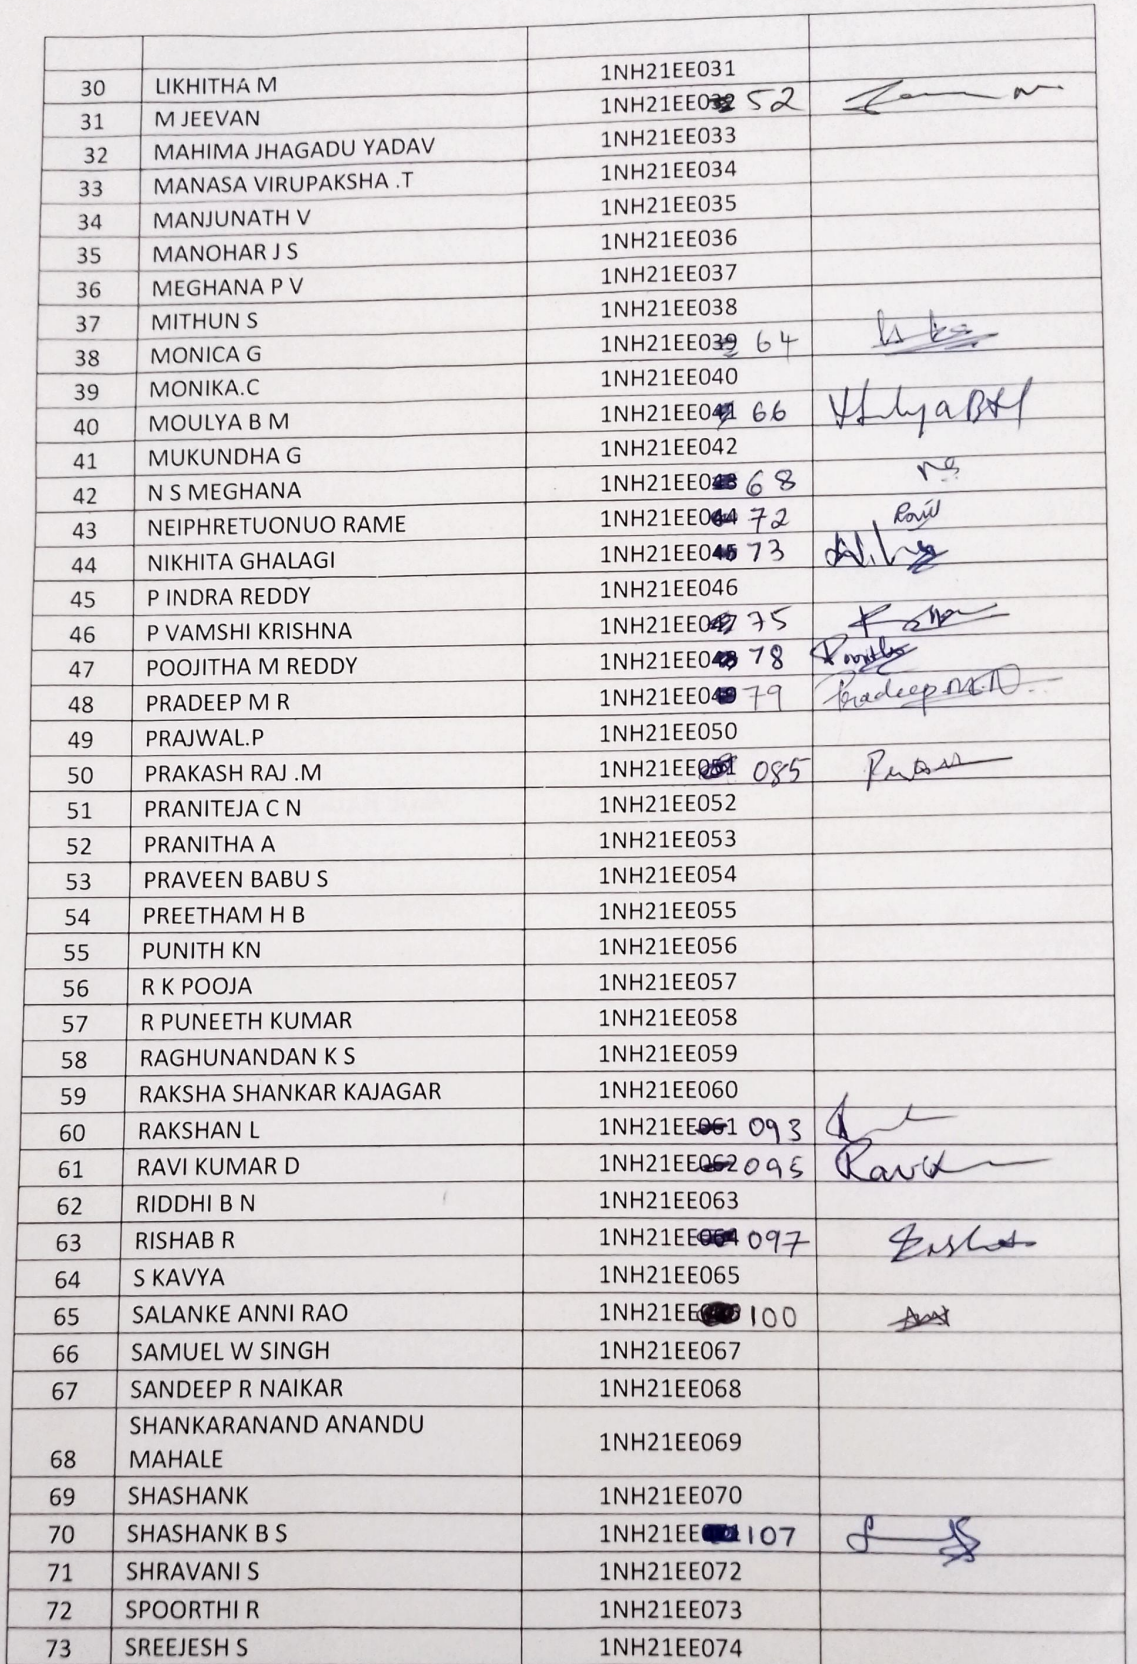 30 LIKHITHA M 1NH21EE031
31 M JEEVAN 1NH21EE032 52
32 MAHIMA JHAGADU YADAV 1NH21EE033
33 MANASA VIRUPAKSHA .T 1NH21EE034
34 MANJUNATH V 1NH21EE035
35 MANOHAR J S 1NH21EE036
36 MEGHANA P V 1NH21EE037
37 MITHUN S 1NH21EE038
38 MONICA G 1NH21EE039 64
39 MONIKA.C 1NH21EE040
40 MOULYA B M 1NH21EE041 66
41 MUKUNDHA G 1NH21EE042
42 N S MEGHANA 1NH21EE043 68
43 NEIPHRETUONUO RAME 1NH21EE044 72
44 NIKHITA GHALAGI 1NH21EE045 73
45 P INDRA REDDY 1NH21EE046
46 P VAMSHI KRISHNA 1NH21EE047 75
47 POOJITHA M REDDY 1NH21EE048 78
48 PRADEEP M R 1NH21EE049 79 Pradeep.M.R
49 PRAJWAL.P 1NH21EE050
50 PRAKASH RAJ .M 1NH21EE051 085
51 PRANITEJA C N 1NH21EE052
52 PRANITHA A 1NH21EE053
53 PRAVEEN BABU S 1NH21EE054
54 PREETHAM H B 1NH21EE055
55 PUNITH KN 1NH21EE056
56 R K POOJA 1NH21EE057
57 R PUNEETH KUMAR 1NH21EE058
58 RAGHUNANDAN K S 1NH21EE059
59 RAKSHA SHANKAR KAJAGAR 1NH21EE060
60 RAKSHAN L 1NH21EE061 093
61 RAVI KUMAR D 1NH21EE062 095
62 RIDDHI B N 1NH21EE063
63 RISHAB R 1NH21EE064 097
64 S KAVYA 1NH21EE065
65 SALANKE ANNI RAO 1NH21EE 100
66 SAMUEL W SINGH 1NH21EE067
67 SANDEEP R NAIKAR 1NH21EE068
68 SHANKARANAND ANANDU
MAHALE 1NH21EE069
69 SHASHANK 1NH21EE070
70 SHASHANK B S 1NH21EE 107
71 SHRAVANI S 1NH21EE072
72 SPOORTHI R 1NH21EE073
73 SREEJESH S 1NH21EE074